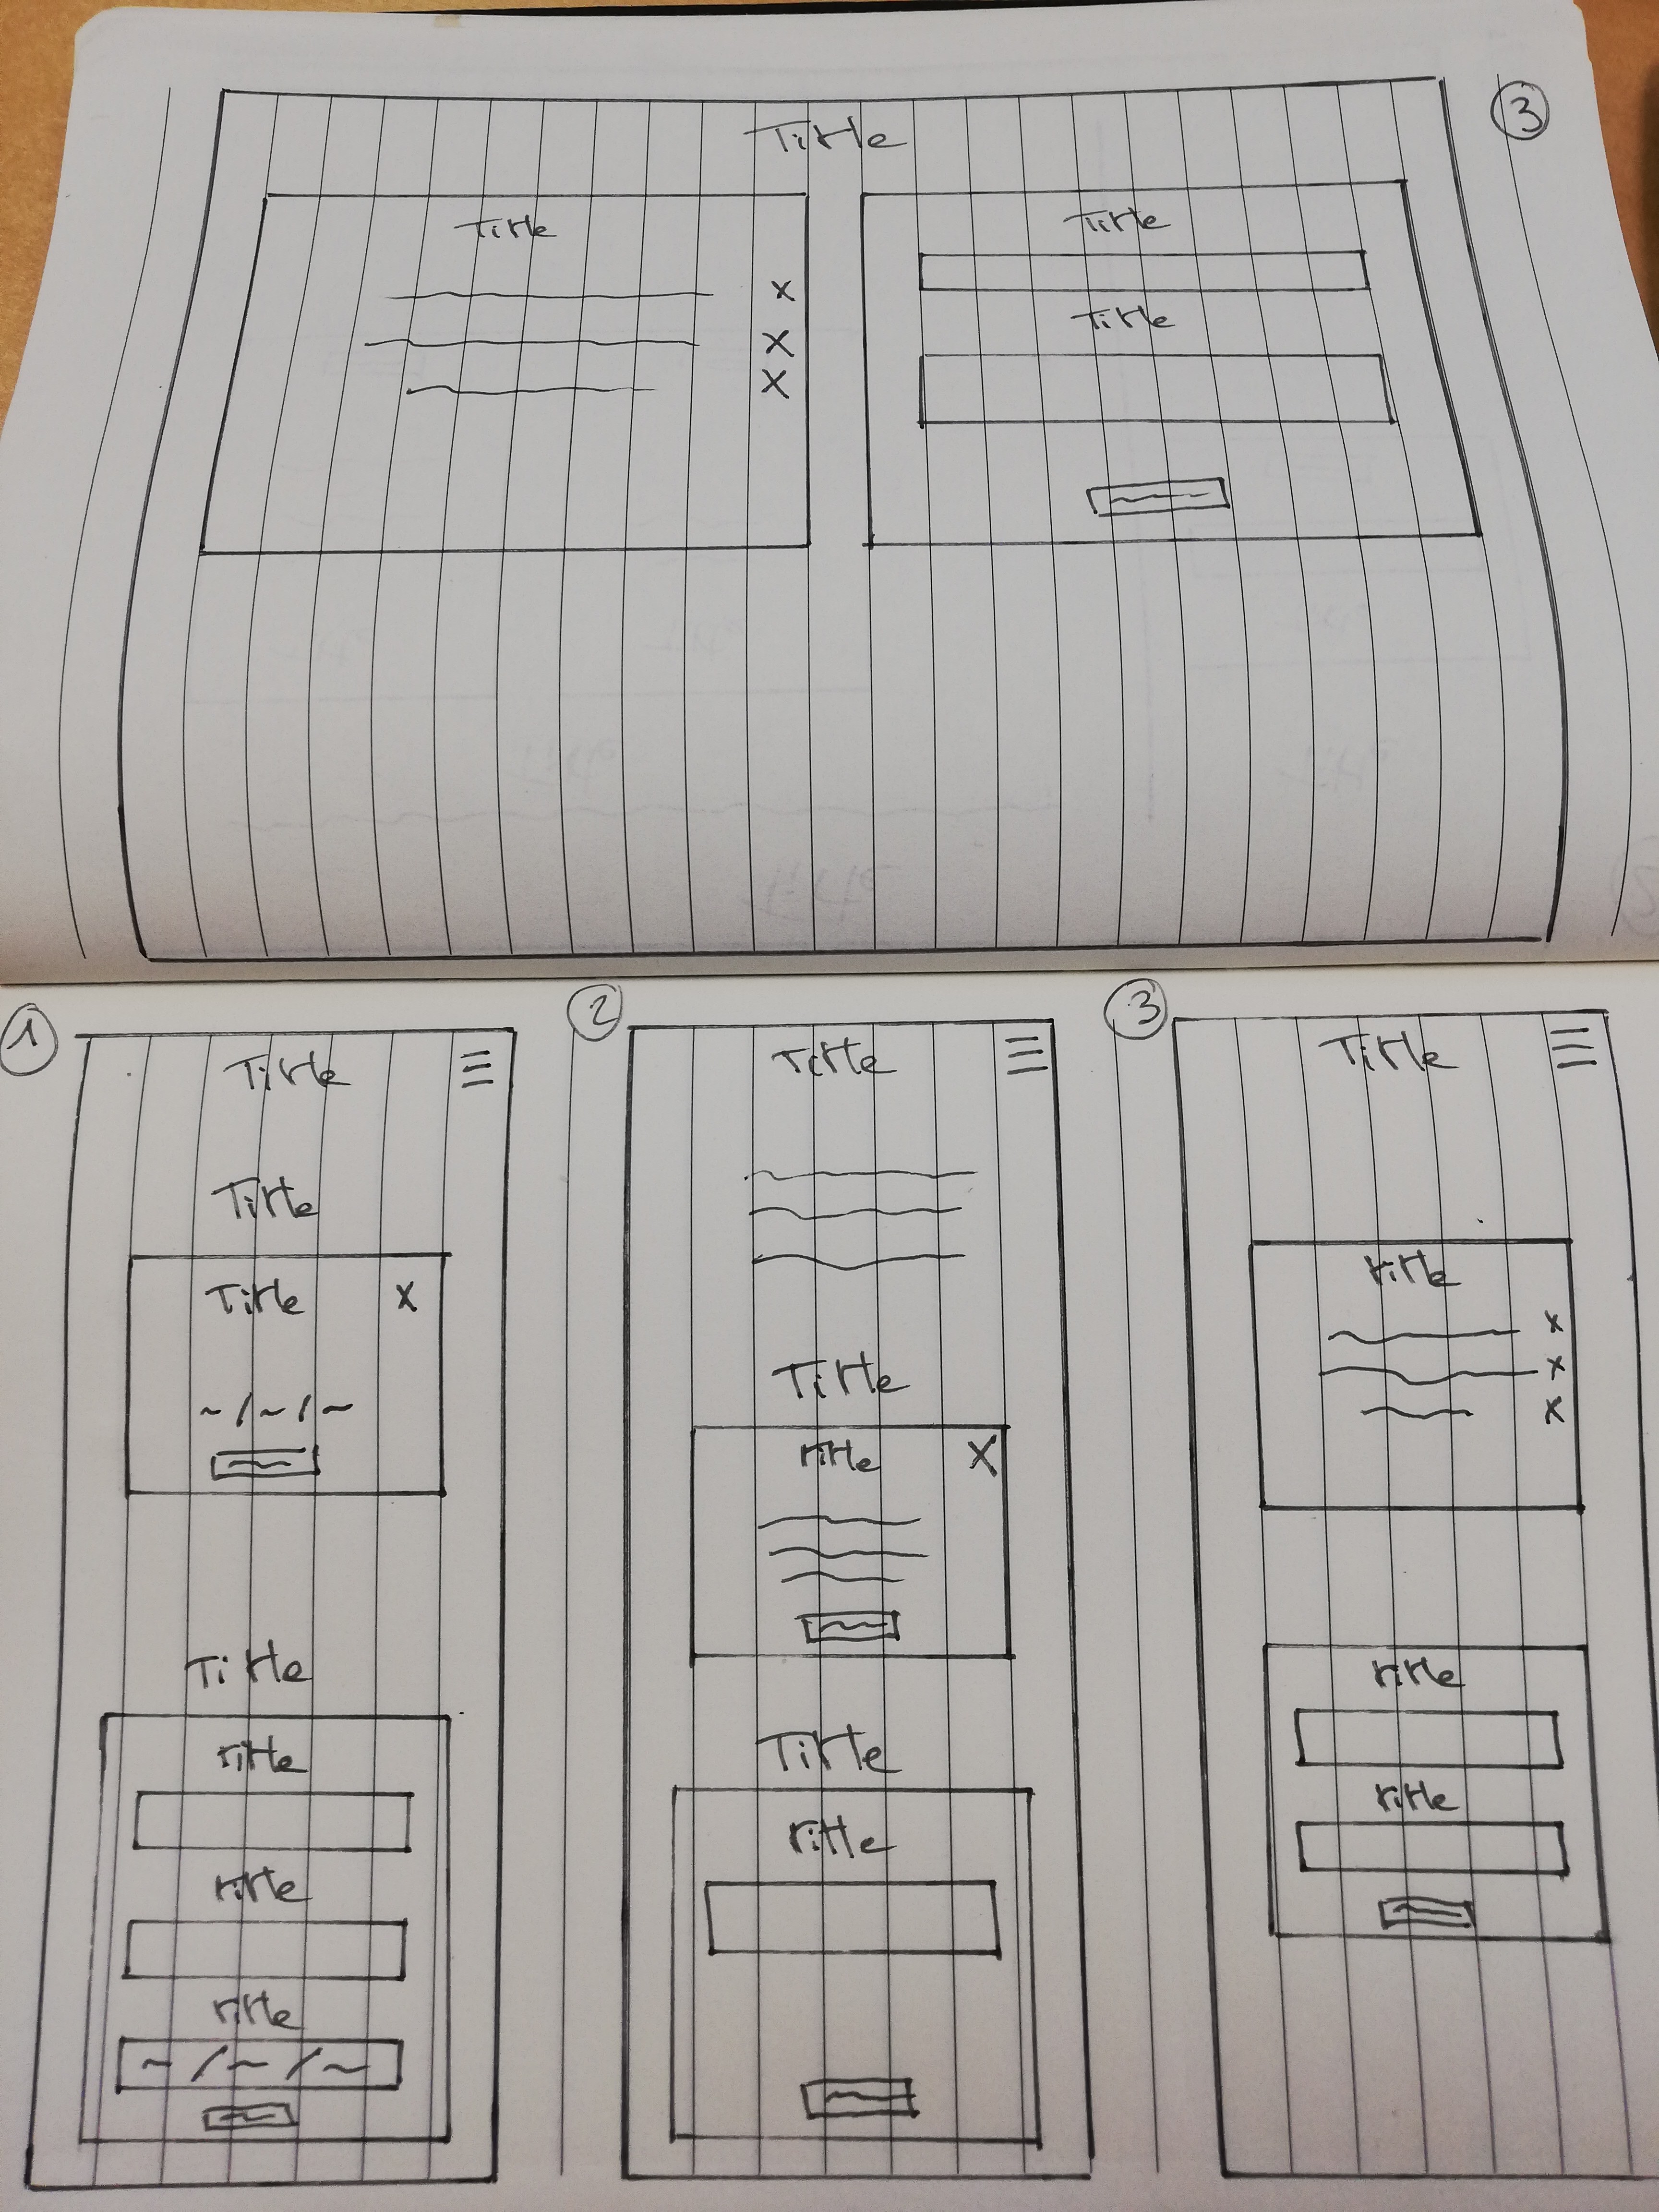 3
Title
Title
x
x
x
Title
Title
1
Title
Title
Title x
~/~/~
Title
Title
Title
Title
~/~/~
2
Title
Title
Title X
Title
Title
3
Title
Title
x
x
x
Title
Title